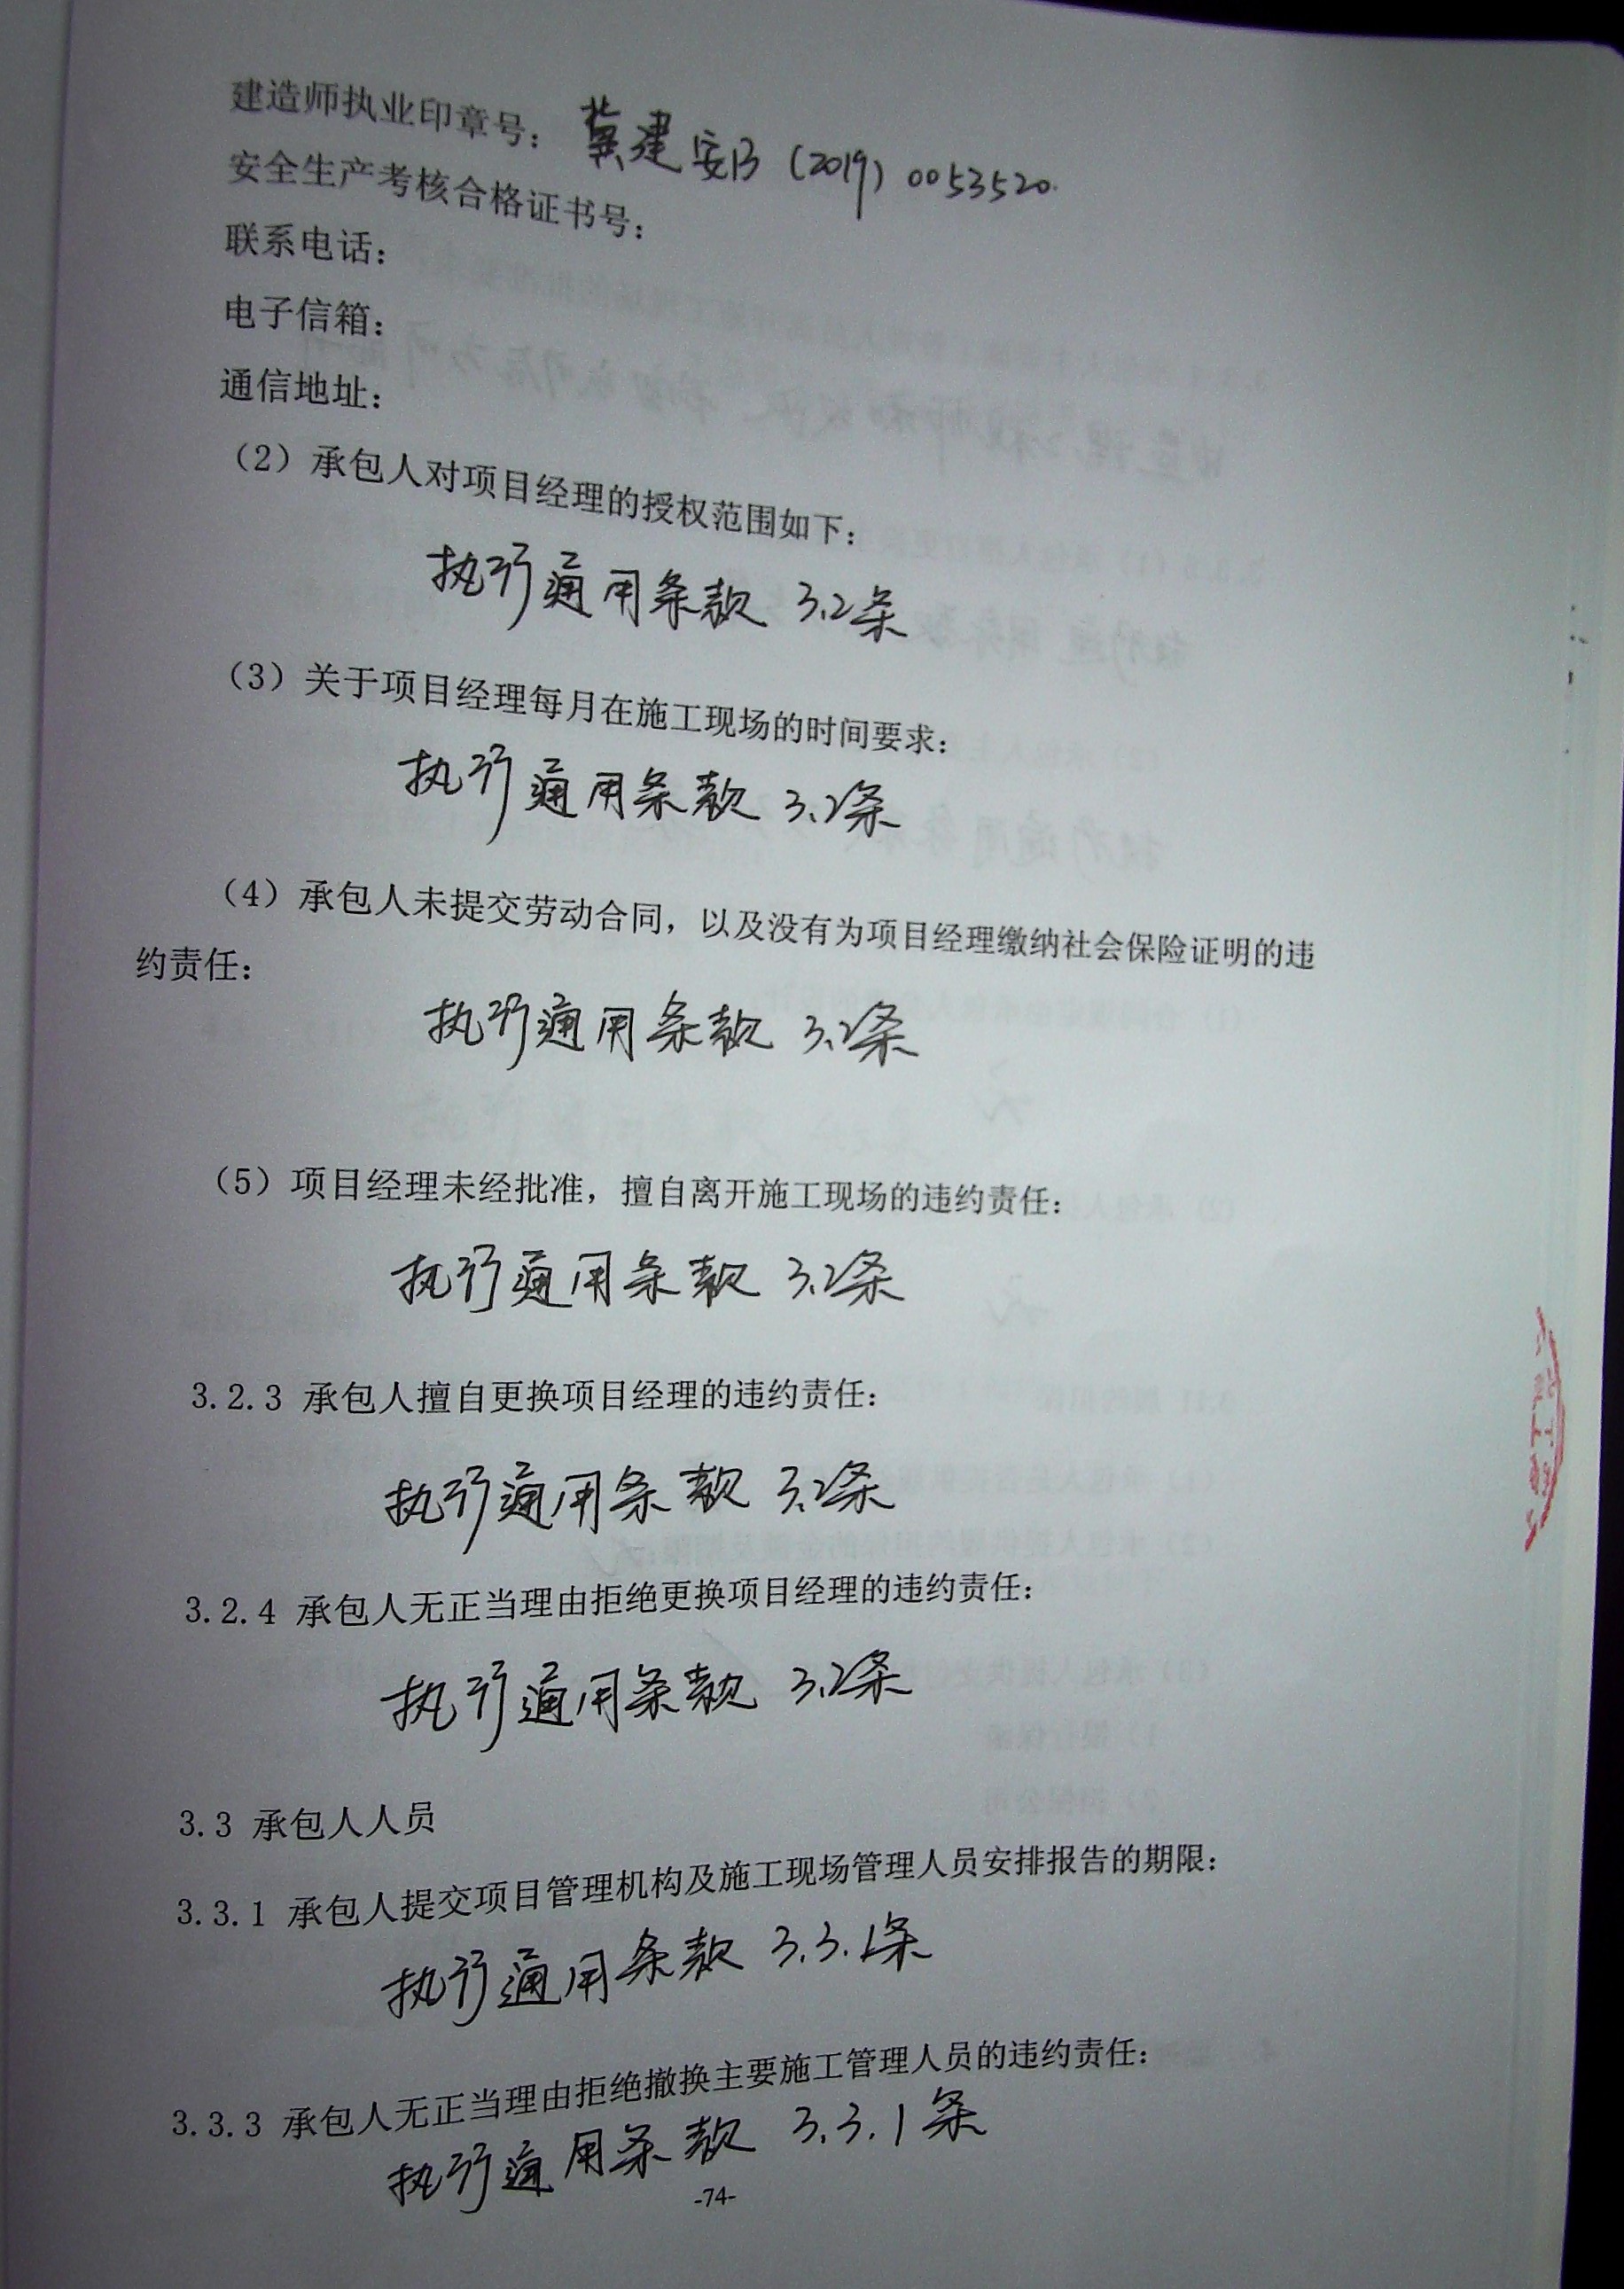 建造师执业印章号：冀建安B（2019）0053520.
安全生产考核合格证书号：
联系电话：
电子信箱：
通信地址：
（2）承包人对项目经理的授权范围如下：
执行通用条款 3.2条
（3）关于项目经理每月在施工现场的时间要求：
执行通用条款 3.2条
（4）承包人未提交劳动合同，以及没有为项目经理缴纳社会保险证明的违
约责任：
执行通用条款 3.2条
（5）项目经理未经批准，擅自离开施工现场的违约责任：
执行通用条款 3.2条
3.2.3 承包人擅自更换项目经理的违约责任：
执行通用条款 3.2条
3.2.4 承包人无正当理由拒绝更换项目经理的违约责任：
执行通用条款 3.2条
3.3 承包人人员
3.3.1 承包人提交项目管理机构及施工现场管理人员安排报告的期限：
执行通用条款 3.3.1条
3.3.3 承包人无正当理由拒绝撤换主要施工管理人员的违约责任：
执行通用条款 3.3.1条
-74-